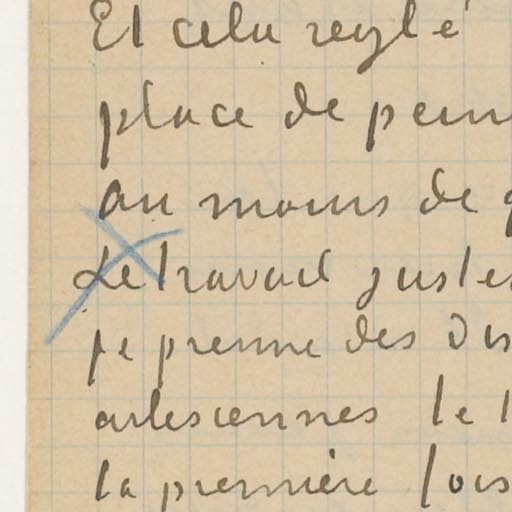 Et cela reglé
place de pein
au moins de
Le travail juste
je prenne des dis
arlesiennes le
la première fois